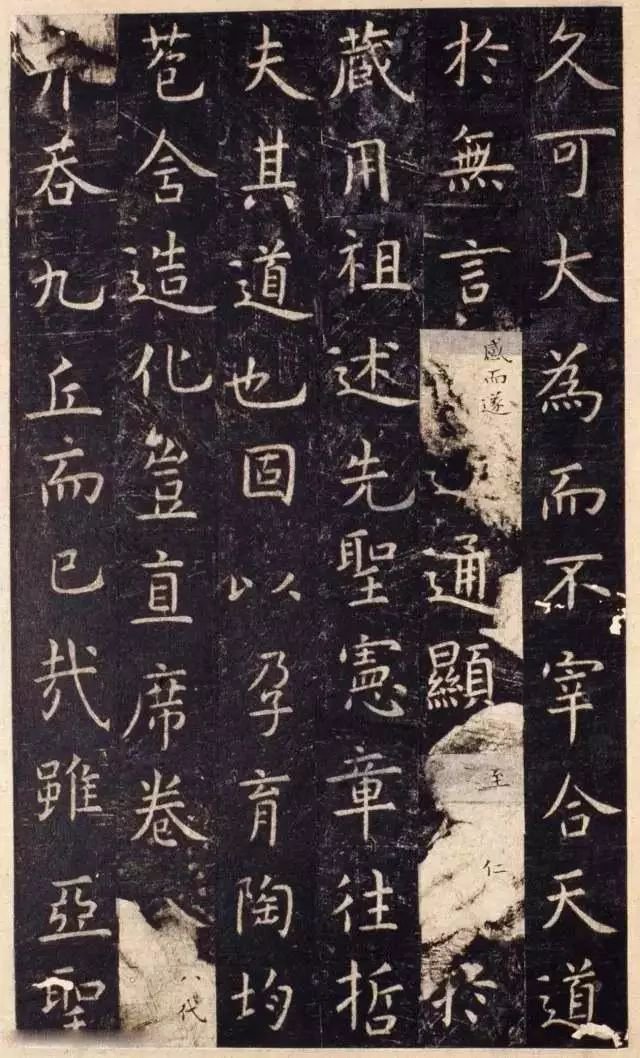 久可大為而不宰合天道
於無言感而遂通顯至仁於
藏用祖述先聖憲章往哲
夫其道也固以孕育陶均
苞含造化豈直席卷八代
吞九丘而已哉雖亞聖